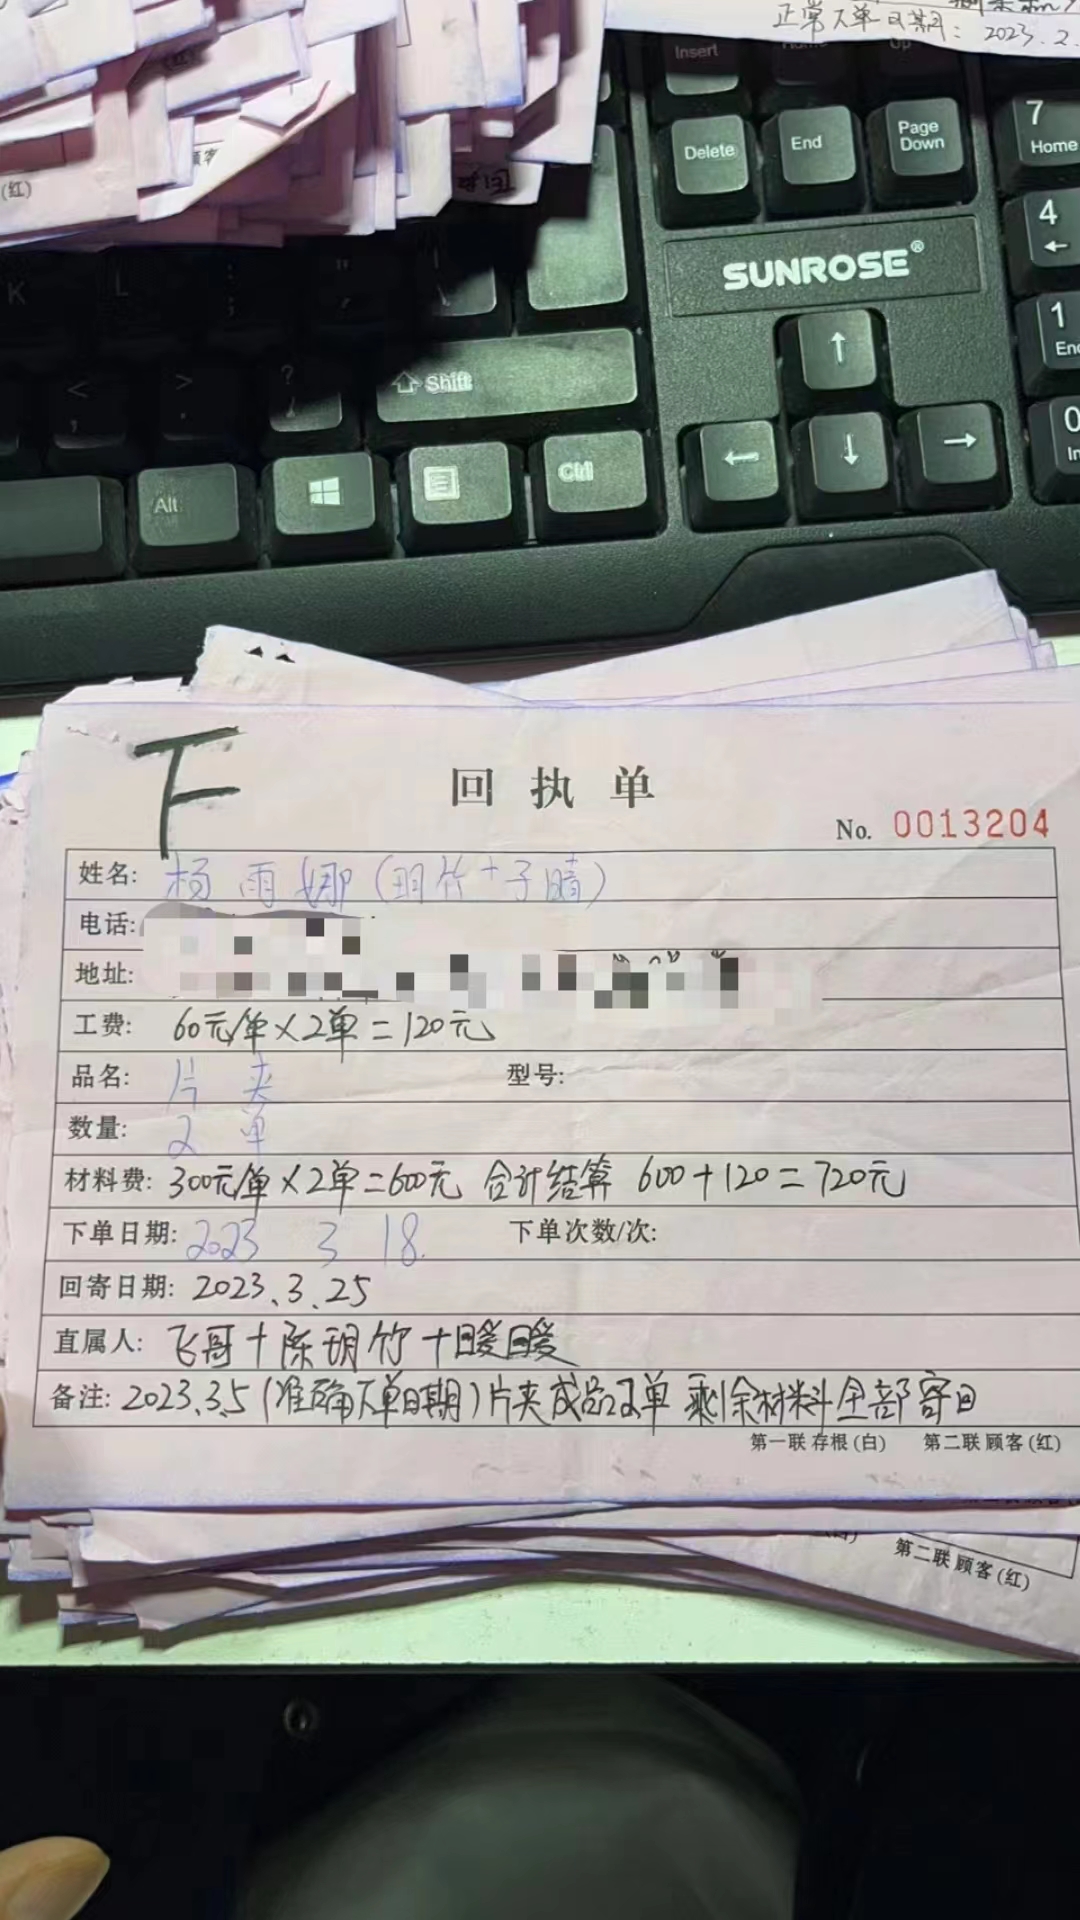 正常下单日期：2023.2.
Insert
Home
Up
Delete
End
Page Down
7
Home
(红)
4
←
SUNROSE®
K
L
1
End
↑
Shift
0
In
←
↓
→
Alt
Ctrl
F
回执单
No. 0013204
姓名: 杨雨娜(玥竹+子晴)
电话:
地址:
工费: 60元/单×2单=120元
品名: 片夹 型号:
数量: 2单
材料费: 300元/单×2单=600元 合计结算 600+120=720元
下单日期: 2023 3 18. 下单次数/次:
回寄日期: 2023.3.25
直属人: 飞哥+陈玥竹+暖暖
备注: 2023.3.5(准确下单日期)片夹成品2单 剩余材料全部寄回
第一联 存根(白) 第二联 顾客(红)
第二联 顾客(红)